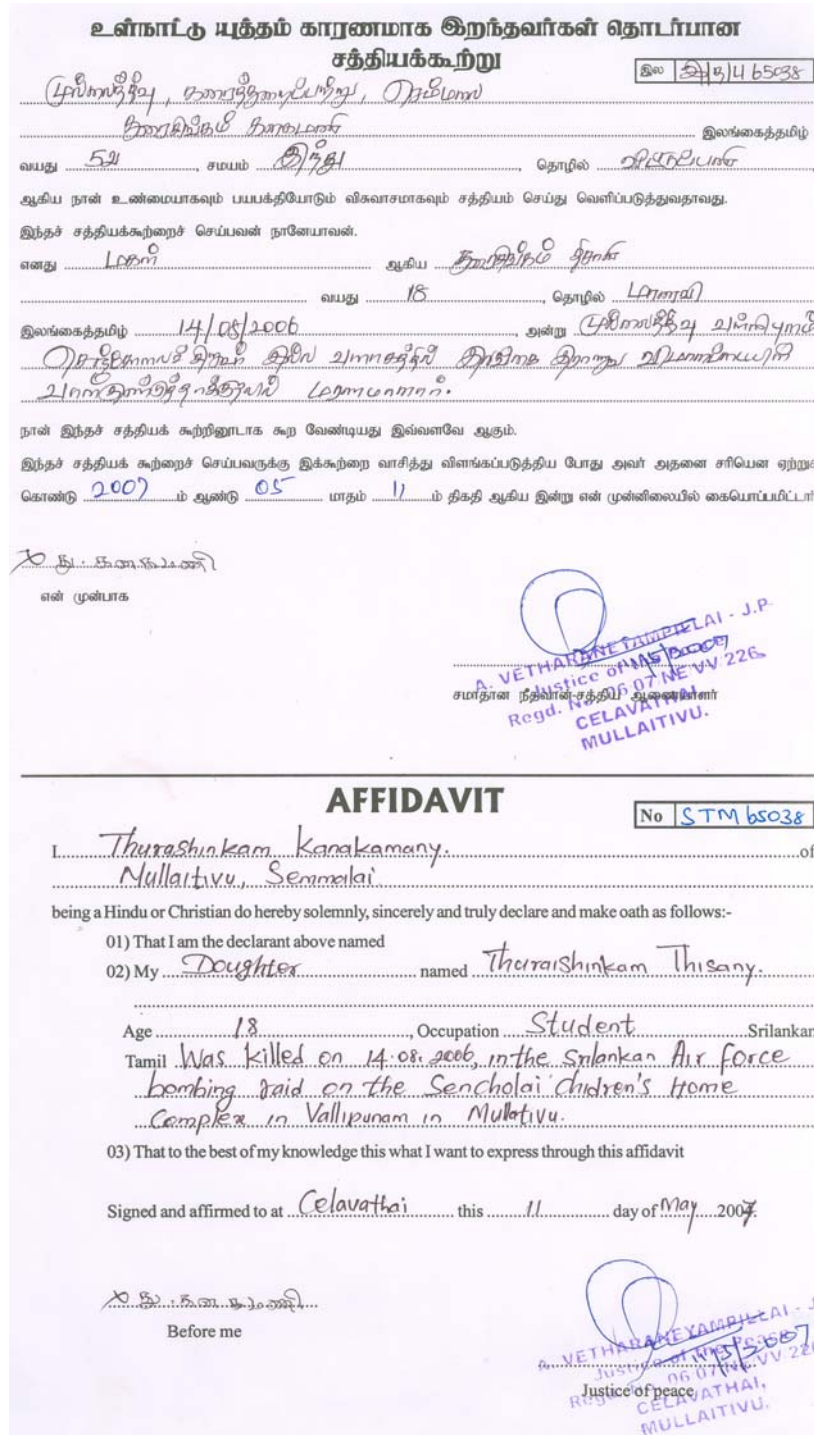 உள்நாட்டு யுத்தம் காரணமாக இறந்தவர்கள் தொடர்பான
சத்தியக்கூற்று
இல 65038
முல்லைத்தீவு, கரைத்துறைப்பற்று, செம்மலை
துரைசிங்கம் கனகமணி இலங்கைத்தமிழ்
வயது 52 சமயம் இந்து, தொழில்
ஆகிய நான் உண்மையாகவும் பயபக்தியோடும் விசுவாசமாகவும் சத்தியம் செய்து வெளிப்படுத்துவதாவது.
இந்தச் சத்தியக்கூற்றைச் செய்பவன் நானேயாவன்.
எனது மகள் ஆகிய துரைசிங்கம் தீசானி
வயது 18, தொழில் மாணவி
இலங்கைத்தமிழ் 14/08/2006, அன்று முல்லைத்தீவு வள்ளிபுனம்
செஞ்சோலைச் சிறுவர் இல்ல வளாகத்தில் இலங்கை இராணுவ விமானப்படையின்
வான்குண்டுத்தாக்குதலில் மரணமானார்.
நான் இந்தச் சத்தியக் கூற்றினூடாக கூற வேண்டியது இவ்வளவே ஆகும்.
இந்தச் சத்தியக் கூற்றைச் செய்பவருக்கு இக்கூற்றை வாசித்து விளங்கப்படுத்திய போது அவர் அதனை சரியென ஏற்றுக்
கொண்டு 2007 ம் ஆண்டு 05 மாதம் 11 ம் திகதி ஆகிய இன்று என் முன்னிலையில் கையொப்பமிட்டார்
x து. கனகமணி
என் முன்பாக
A. VETHARANEYAMPILLAI - J.P.
Justice of the Peace
11/5/2007
Regd. No. 06 07 NE VV 226
சமாதான நீதவான்-சத்திய ஆணையாளர்
CELAVATHAI,
MULLAITIVU.
AFFIDAVIT
No STM 65038
I Thurashinkam Kanakamany. of
Mullaitivu, Semmalai.
being a Hindu or Christian do hereby solemnly, sincerely and truly declare and make oath as follows:-
01) That I am the declarant above named
02) My Doughter named Thuraishinkam Thisany.
Age 18, Occupation Student Srilankan
Tamil Was killed on 14.08.2006, in the Srilankan Air force
bombing raid on the Sencholai chidren's Home
Complex in Vallipunam in Mullativu.
03) That to the best of my knowledge this what I want to express through this affidavit
Signed and affirmed to at Celavathai this 11 day of May 2007.
x து. கனகமணி
Before me
A. VETHARANEYAMPILLAI - J.
Justice of the Peace
11/5/2007
Regd. No. 06 07 NE VV 226
Justice of peace
CELAVATHAI,
MULLAITIVU.